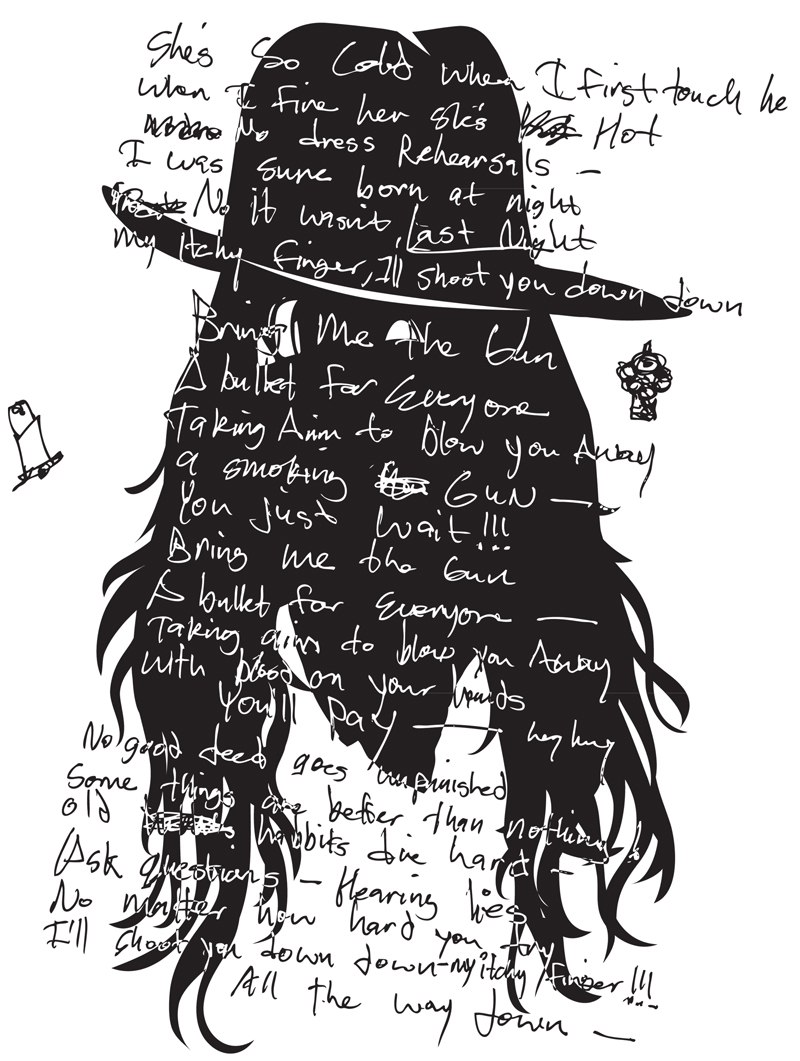 She's So Cold when I first touch he
when I fire her she's Hot
No dress Rehearsals –
I was sure born at night
No it wasn't, Last Night
my itchy finger, I'll shoot you down down
Bring Me The Gun
A bullet for Everyone
Taking Aim to blow you Away
a smoking GUN —
You just wait!!!
Bring me the Gun
A bullet for Everyone —
Taking aim to blow you Away
with blood on your hands
You'll pay — hey hey
No good deed goes unpunished
Some things are better than nothing!
old habbits die hard –
Ask questions – Hearing lies
No matter how hard you try
I'll shoot you down down-my itchy finger!!!
All the way down —